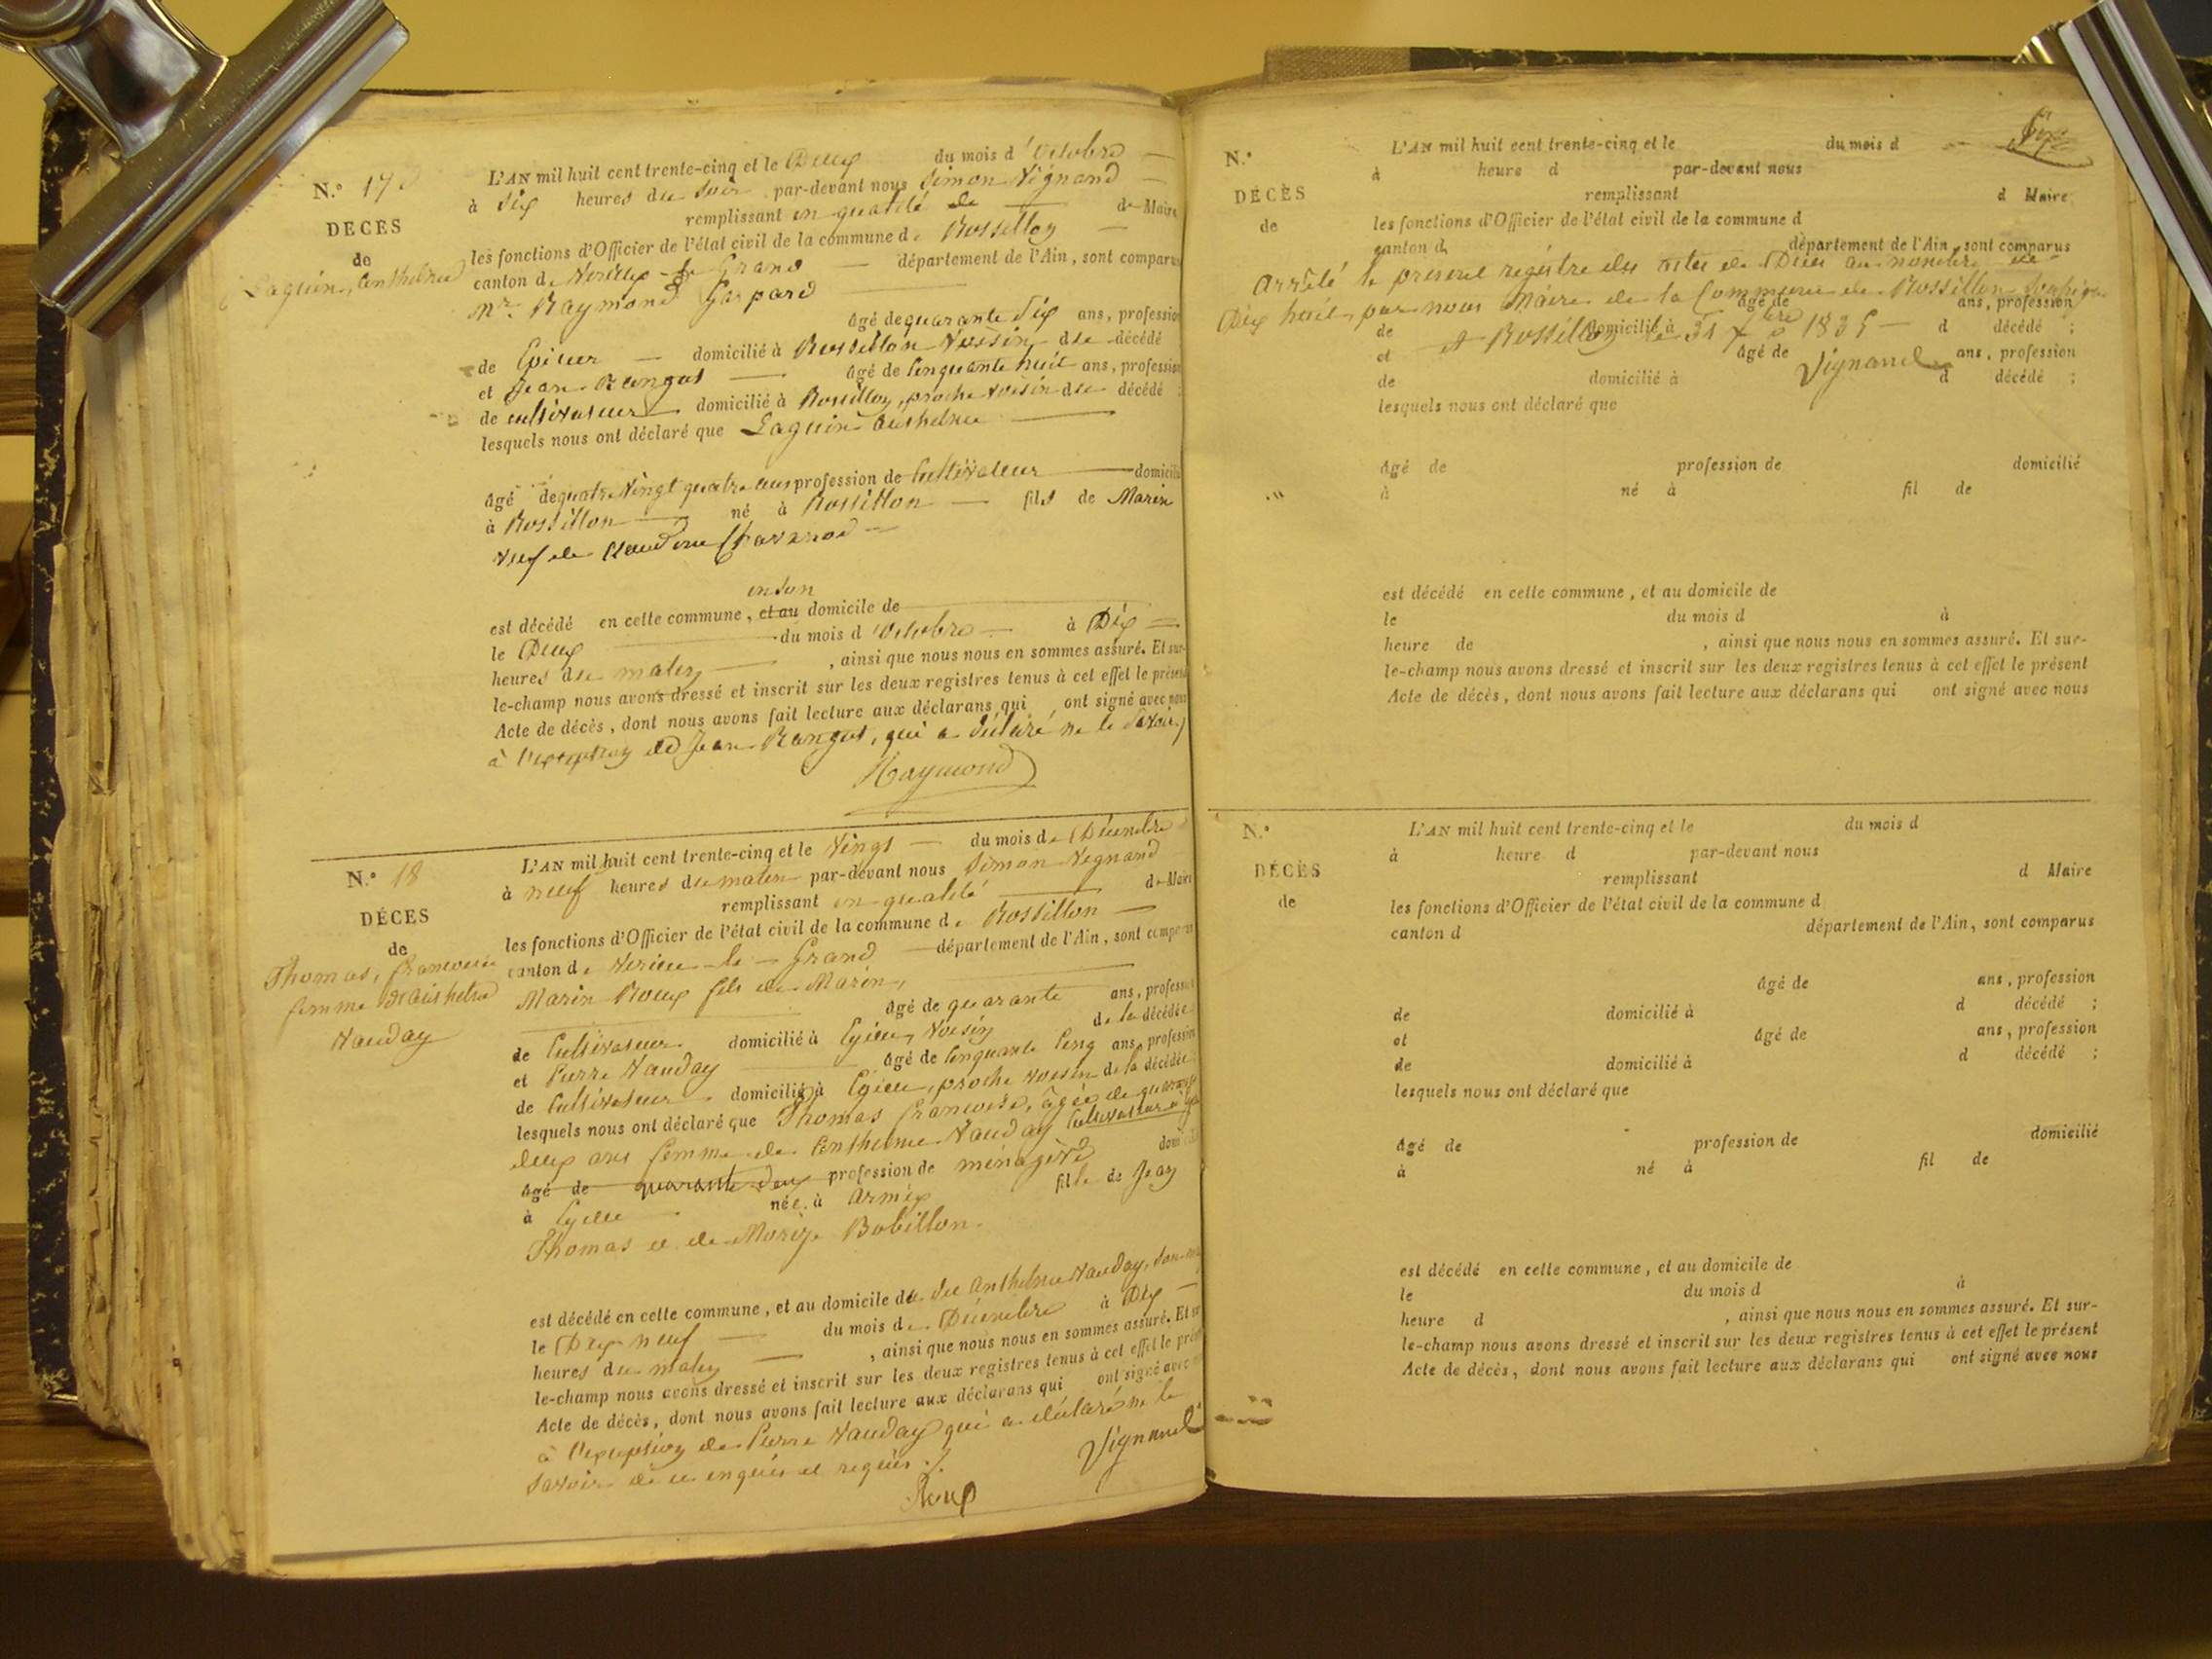 N.° 17
DÉCÈS
de
Laguin, Anthelme
L'AN mil huit cent trente-cinq et le Deux du mois d'octobre
à Six heures du soir par-devant nous Simon Vignand
remplissant en qualité de de Maire
les fonctions d'Officier de l'état civil de la commune de Rossillon
canton de Virieu-le-Grand département de l'Ain, sont comparus
Mr. Raymond Gaspard
âgé de quarante Six ans, profession
de Epicier domicilié à Rossillon Voisin du décédé
et Jean Rangot âgé de Cinquante huit ans, profession
de cultivateur domicilié à Rossillon, proche voisin du décédé ;
lesquels nous ont déclaré que Laguin Anthelme
âgé de quatre Vingt quatre ans profession de Cultivateur domicilié
à Rossillon né à Rossillon fils de Marin
veuf de Claudine
en son
est décédé en cette commune, et au domicile de
le Deux du mois d'octobre à Dix
heures du matin, ainsi que nous nous en sommes assuré. Et sur-
le-champ nous avons dressé et inscrit sur les deux registres tenus à cet effet le présent
Acte de décès, dont nous avons fait lecture aux déclarans qui ont signé avec nous
à l'exception de Jean Rangot, qui a déclaré ne le savoir
Raymond
N.° 18
DÉCES
de
Thomas, françoise
femme d'Anthelme
Nauday
L'AN mil huit cent trente-cinq et le Vingt du mois de Décembre
à neuf heures du matin par-devant nous Simon Vignand
remplissant en qualité de Maire
les fonctions d'Officier de l'état civil de la commune de Rossillon
canton de Virieu-le-Grand département de l'Ain, sont comparus
Marin Roux fils de Marin,
âgé de quarante ans, profession
de Cultivateur domicilié à Egieu, Voisin de la décédée
et Pierre Nauday âgé de Cinquante Cinq ans, profession
de Cultivateur domicilié à Egieu, proche voisin de la décédée
lesquels nous ont déclaré que Thomas françoise, âgée de quarante
deux ans femme de Anthelme Nauday Cultivateur à
âgé de quarante deux profession de ménagère
à Egieu née à Armix fille de Jean
Thomas et de Marie Bobillon
est décédé en cette commune, et au domicile de du Anthelme Nauday, son
le Dix neuf du mois de Décembre à Dix
heures du matin, ainsi que nous nous en sommes assuré. Et sur
le-champ nous avons dressé et inscrit sur les deux registres tenus à cet effet le présent
Acte de décès, dont nous avons fait lecture aux déclarans qui ont signé avec
à l'exception de Pierre Nauday qui a déclaré ne le
savoir de ce enquis et requis ./.
Vignand
Roux
N.°
DÉCÈS
de
L'AN mil huit cent trente-cinq et le du mois d
à heure d par-devant nous
remplissant d Maire
les fonctions d'Officier de l'état civil de la commune d
canton d département de l'Ain, sont comparus
Arrêté le présent régistre des actes de Décès au nombre de
âgé de ans, profession
Dix huit, par nous Maire de la Commune de Rossillon
de domicilié à d décédé ;
à Rossillon le 31 Xbre 1835
et âgé de ans, profession
Vignand
de domicilié à d décédé ;
lesquels nous ont déclaré que
âgé de profession de domicilié
à né à fil de
est décédé en cette commune, et au domicile de
le du mois d à
heure de , ainsi que nous nous en sommes assuré. Et sur-
le-champ nous avons dressé et inscrit sur les deux registres tenus à cet effet le présent
Acte de décès, dont nous avons fait lecture aux déclarans qui ont signé avec nous
N.°
DÉCÈS
de
L'AN mil huit cent trente-cinq et le du mois d
à heure d par-devant nous
remplissant d Maire
les fonctions d'Officier de l'état civil de la commune d
canton d département de l'Ain, sont comparus
âgé de ans, profession
de domicilié à d décédé ;
et âgé de ans, profession
de domicilié à d décédé ;
lesquels nous ont déclaré que
âgé de profession de domicilié
à né à fil de
est décédé en cette commune, et au domicile de
le du mois d à
heure d , ainsi que nous nous en sommes assuré. Et sur-
le-champ nous avons dressé et inscrit sur les deux registres tenus à cet effet le présent
Acte de décès, dont nous avons fait lecture aux déclarans qui ont signé avec nous